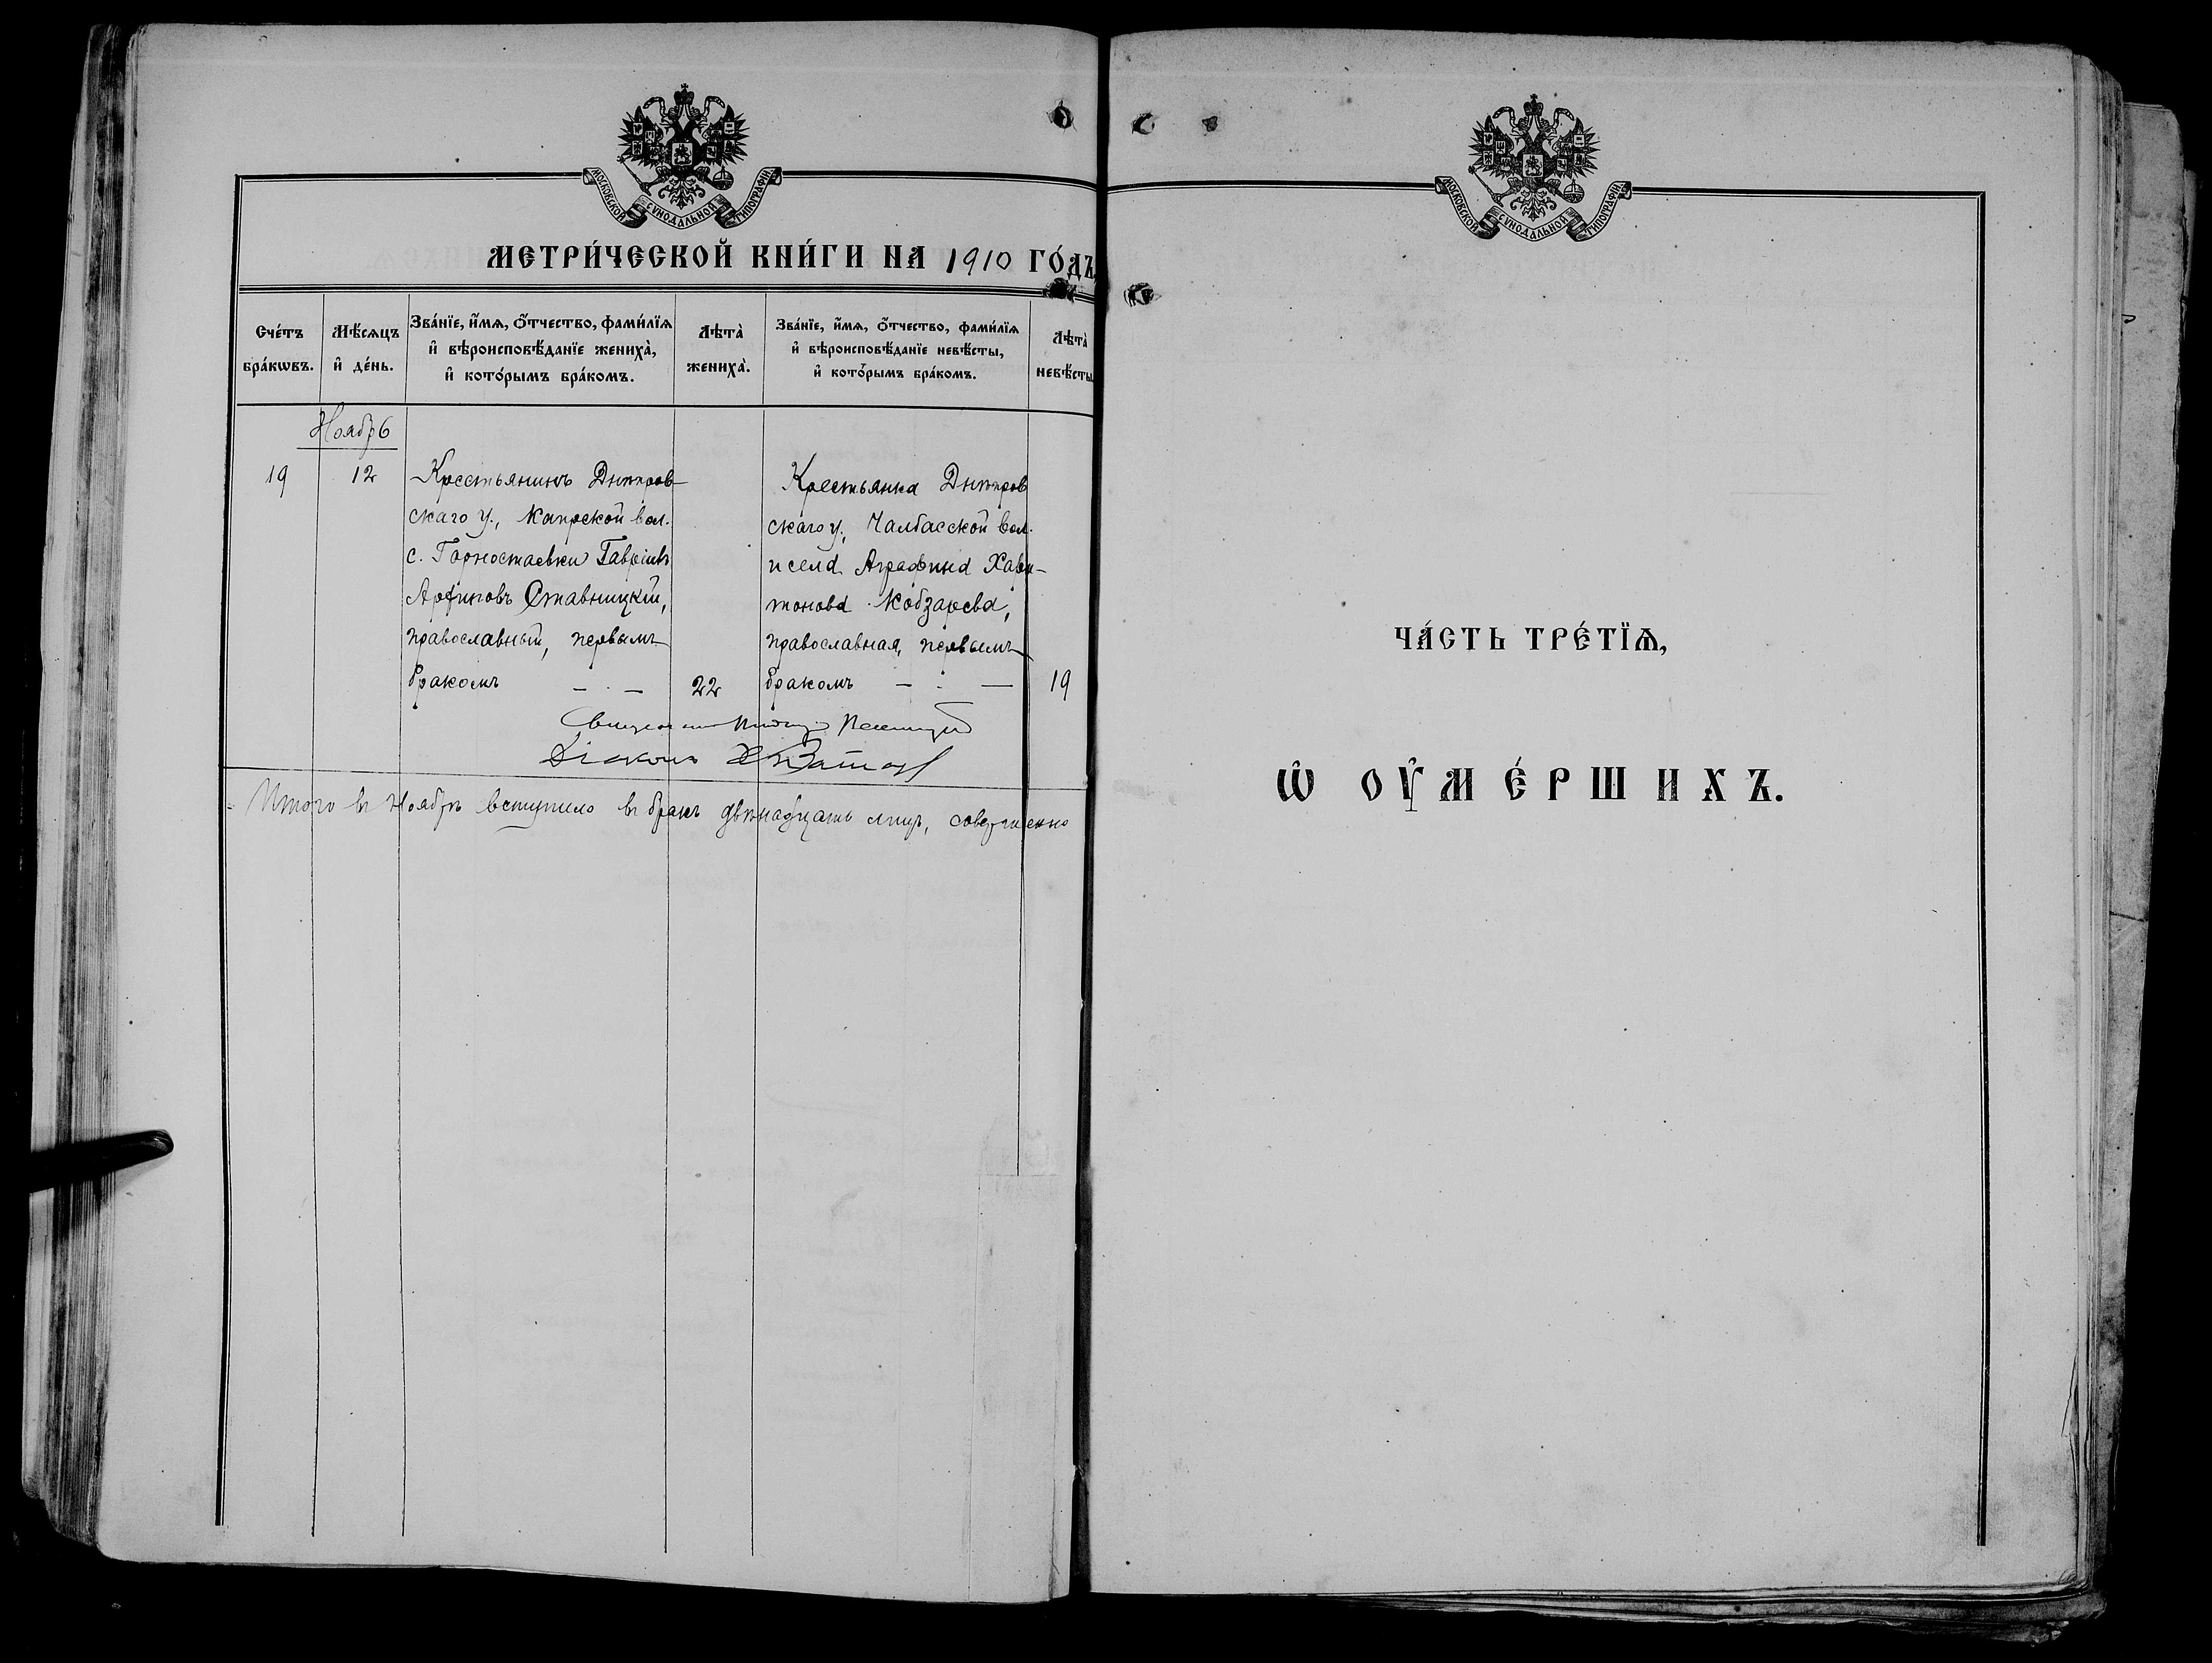 МОСКОВСКОЙ СѴНОДАЛЬНОЙ ТИПОГРАФІИ
МЕТРИ́ЧЕСКОЙ КНИ́ГИ НА 1910 ГО́ДЪ
Сче́тъ бра́кѡвъ.
Мѣ́сѧцъ и҆ де́нь.
Зва́нїе, и҆́мѧ, ѻ҆́тчество, фами́лїѧ
и҆ вѣроисповѣ́данїе жениха̀,
и҆ кото́рымъ бра́комъ.
Лѣта̀ жениха̀.
Зва́нїе, и҆́мѧ, ѻ҆́тчество, фами́лїѧ
и҆ вѣроисповѣ́данїе невѣ́сты,
и҆ кото́рымъ бра́комъ.
Лѣта̀ невѣ́сты
Ноябрь
19
12
Крестьянинъ Днѣпров-
скаго у., Каирской вол.
с. Горностаевки Гавріилъ
Ставницкій,
православный, первымъ
бракомъ — . —
22
Крестьянка Днѣпров
скаго у., Чалбасской вол.
и села Аграфина Хари-
тонова Кобзарева,
православная, первымъ
бракомъ — . —
19
Діаконъ
Итого въ Ноябрѣ вступило въ бракъ двѣнадцать лицъ,
МОСКОВСКОЙ СѴНОДАЛЬНОЙ ТИПОГРАФІИ
ЧА́СТЬ ТРЕ́ТЇѦ,
Ѡ҆ ОУ҆МЕ́РШИХЪ.